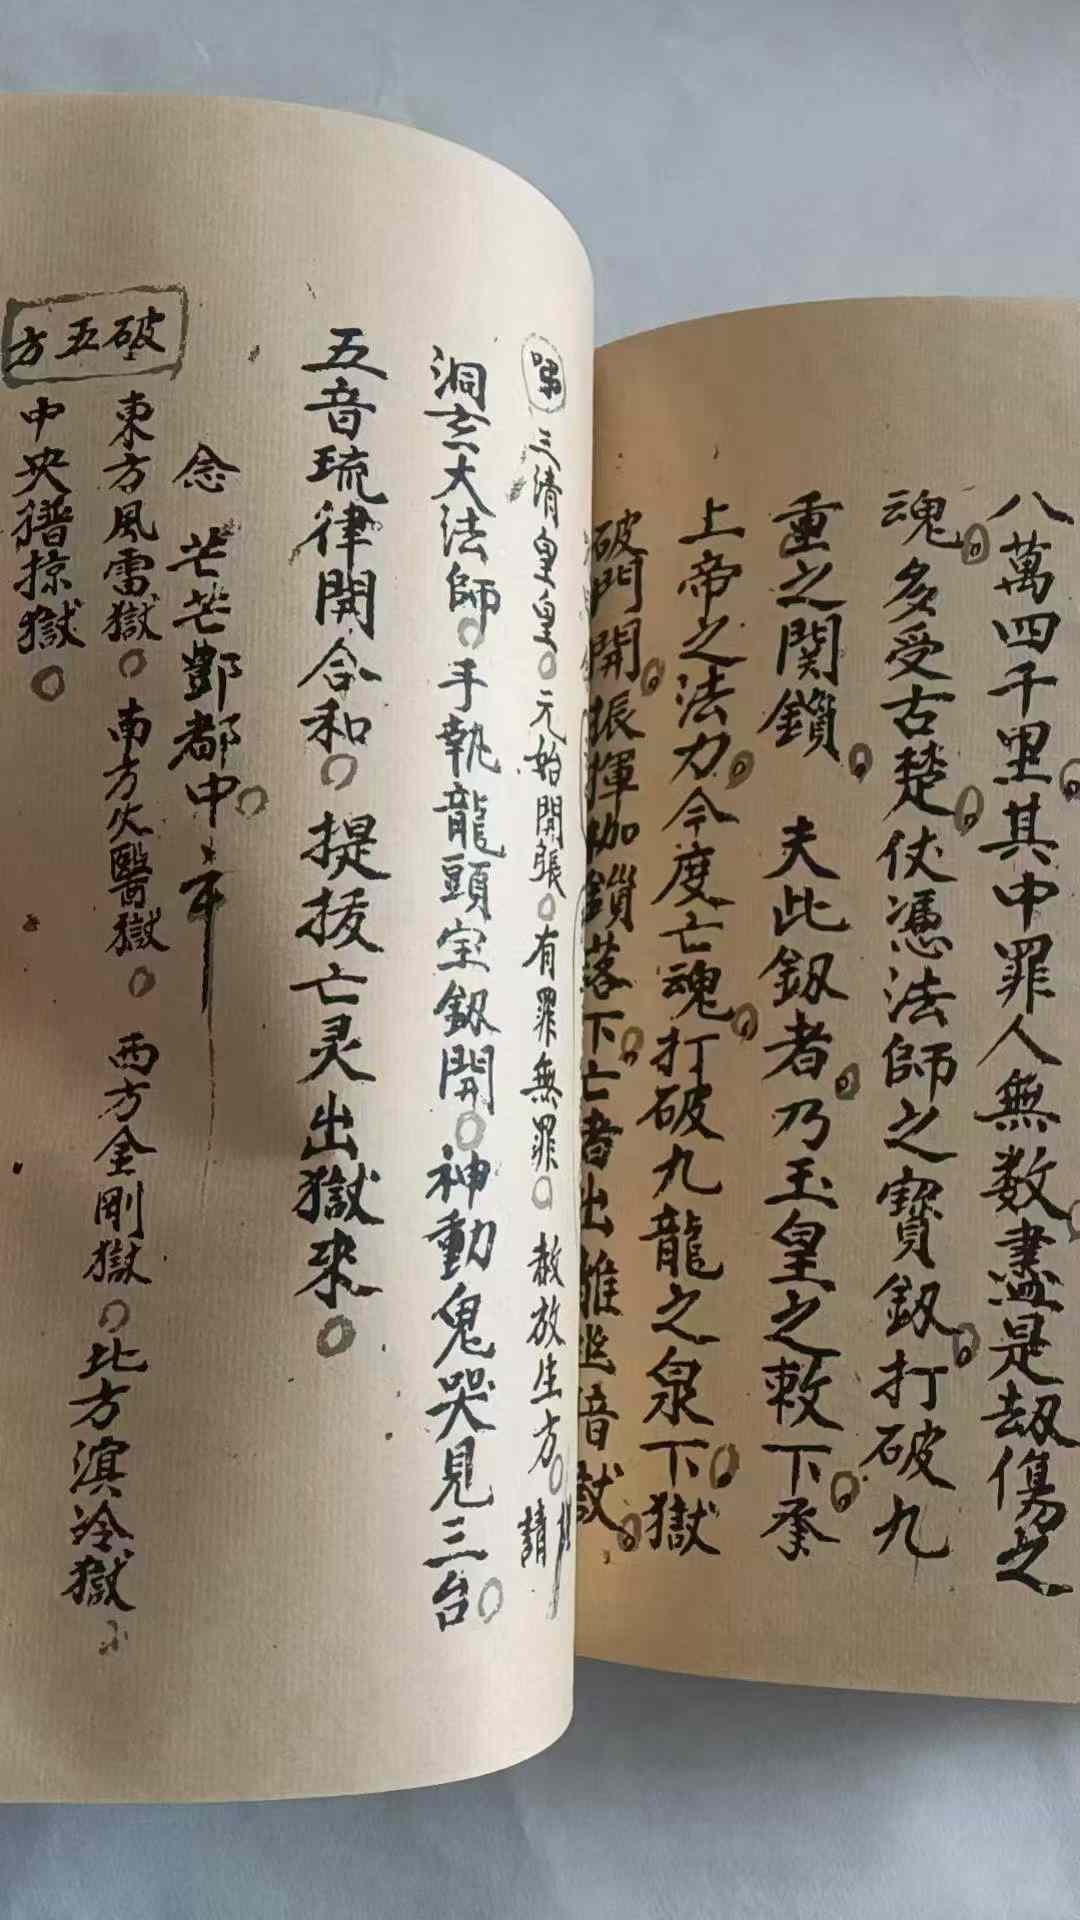 八萬四千里其中罪人無数盡是劫傷之
魂多受古楚仗憑法師之寶釼打破九
重之関鎖 夫此釼者乃玉皇之敕下承
上帝之法力今度亡魂打破九龍之泉下獄
破門開振揮枷鎖落下亡者出離 音獄
三清皇皇元始開張有罪無罪赦放生方 請
洞玄大法師手執龍頭宝釼開神動鬼哭見三台
五音琉律開合和提拔亡灵出獄來
念 芒芒酆都中
破五方
東方風雷獄 南方火醫獄 西方金剛獄 北方溟冷獄
中央 掠獄